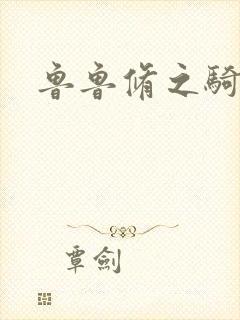 魯魯脩之騎
覃劍